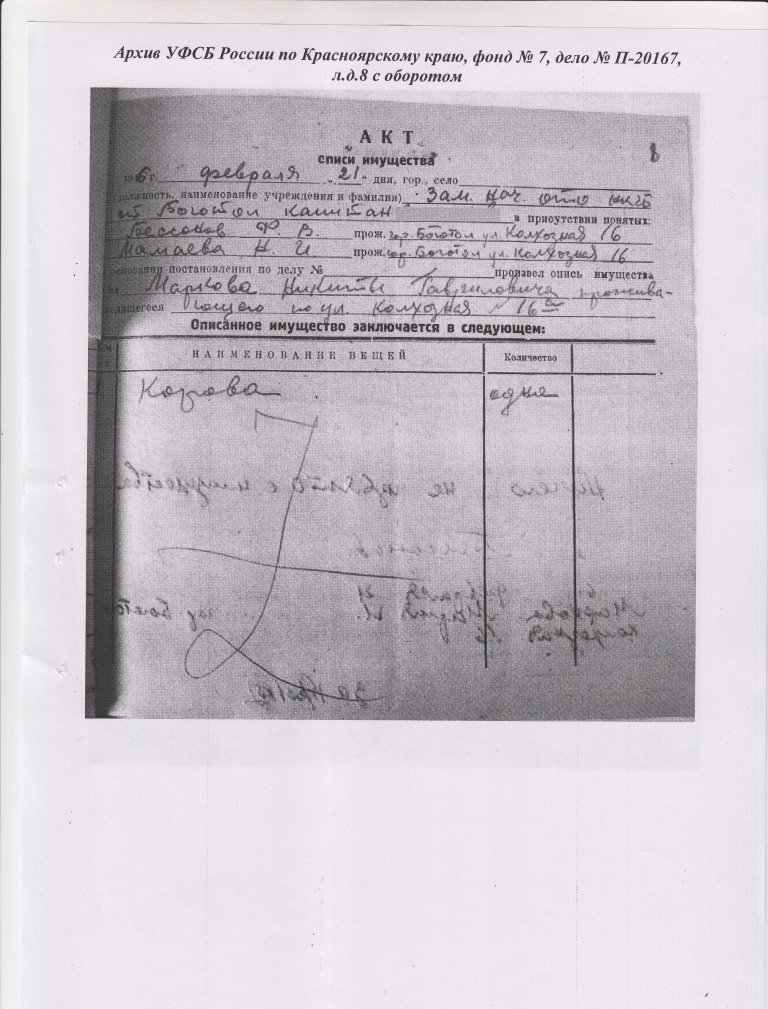 Архив УФСБ России по Красноярскому краю, фонд № 7, дело № П-20167,
л.д.8 с оборотом
8
АКТ
описи имущества
6 г. февраля „21" дня, гор., село
должность, наименование учреждения и фамилии) Зам. нач. ото нкгб
ст Боготол капитан в присутствии понятых:
Бессонов Ф. В. прож. гор. Боготол ул. Колхозная 16
Мамаева Н. И. прож. гор. Боготол ул. Колхозная 16
основании постановления по делу № произвел опись имущества
Маркова Никиты Гавриловича прожива-
ходящегося ющего по ул. Колхозная № 16а
Описанное имущество заключается в следующем:
НАИМЕНОВАНИЕ ВЕЩЕЙ Количество
Корова одна